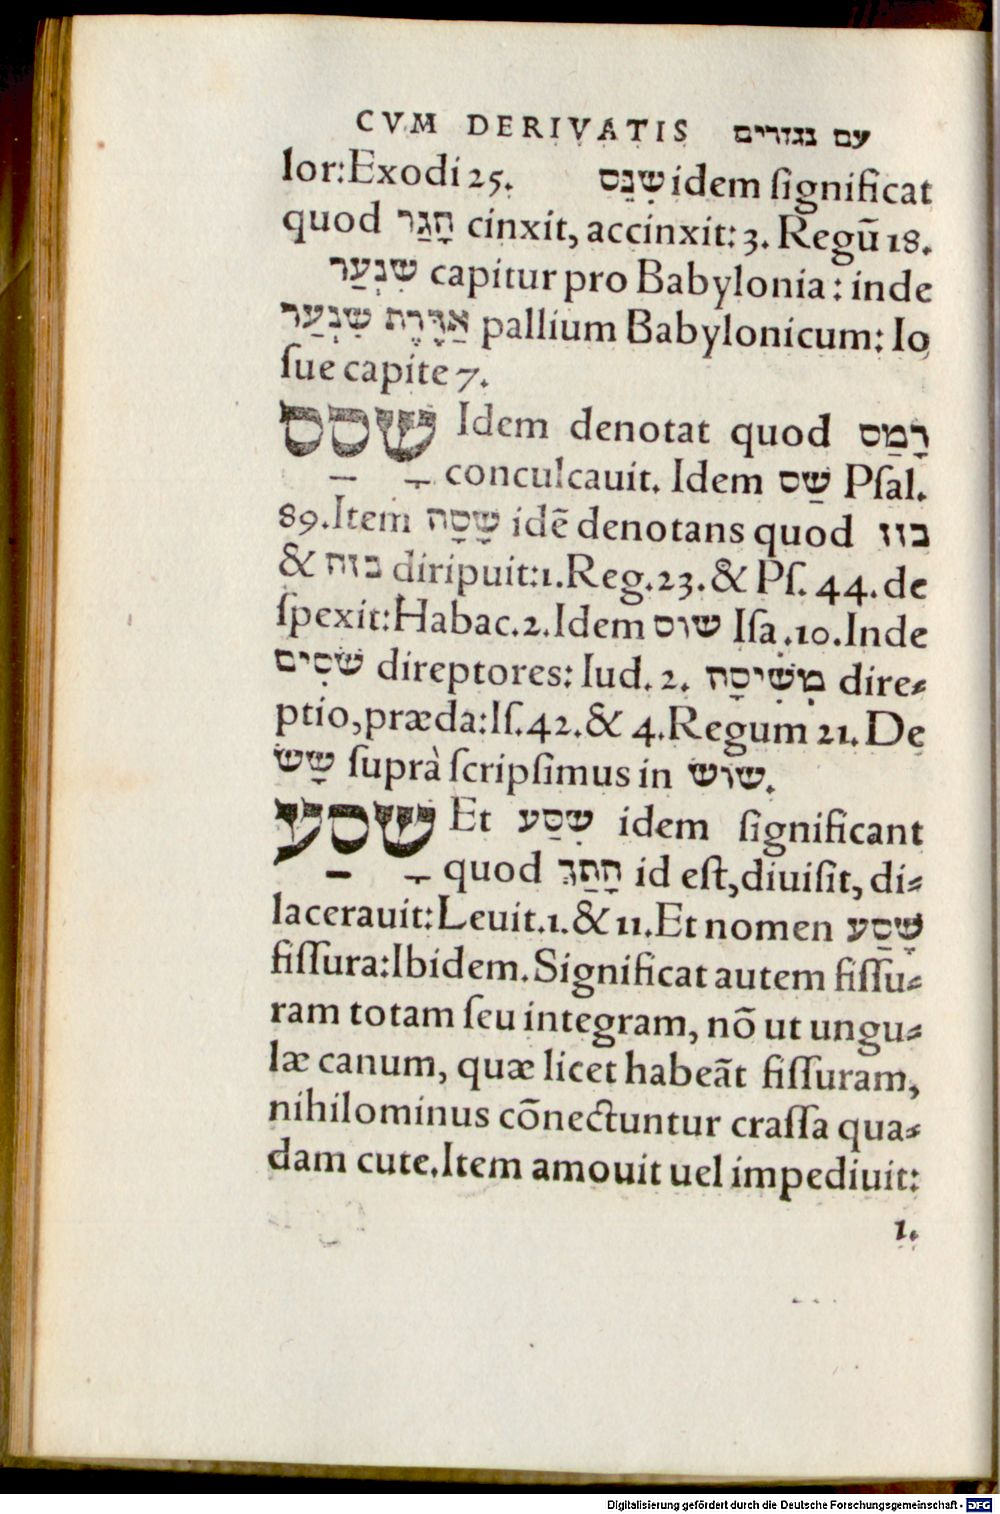 CVM DERIVATIS עם נגזרים
lor:Exodi 25. שִׁנֵּס idem ſignificat
quod חָגַר cinxit, accinxit: 3. Regū 18.
שִׁנְעַר capitur pro Babylonia: inde
אַדֶּרֶת שִׁנְעַר pallium Babylonicum: Io
ſue capite 7.
שסס Idem denotat quod רָמַס
conculcauit. Idem שַׁס Pſal.
89. Item שָׁסָה idē denotans quod בזז
& בזה diripuit:1. Reg. 23. & Pſ. 44. de
ſpexit: Habac. 2. Idem שוס Iſa. 10. Inde
שֹׁסִים direptores: Iud. 2. מְשִׁיסָה dire⸗
ptio, præda: Iſ. 42. & 4. Regum 21. De
שָׂשׂ ſuprà ſcripſimus in שׂושׂ.
שסע Et שִׁסַּע idem ſignificant
quod חָתַךְ id eſt, diuiſit, di⸗
lacerauit: Leuit. 1. & 11. Et nomen שֶׁסַע
fiſſura: Ibidem. Significat autem fiſſu⸗
ram totam ſeu integram, nō ut ungu⸗
læ canum, quæ licet habeāt fiſſuram,
nihilominus cōnectuntur craſſa qua⸗
dam cute. Item amouit uel impediuit:
1.
Digitalisierung gefördert durch die Deutsche Forschungsgemeinschaft - DFG